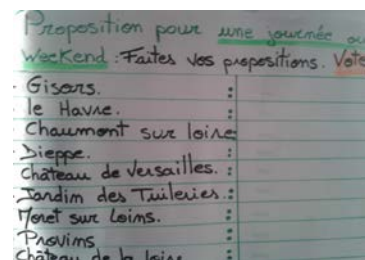 Proposition pour une journée ou
Weekend : Faites vos propositions. Vote
Gisors. :
le Havre. :
Chaumont sur loire :
Dieppe. :
Château de Versailles. :
Jardin des Tuileries. :
Moret sur Loins. :
Provins :
Château de la loire